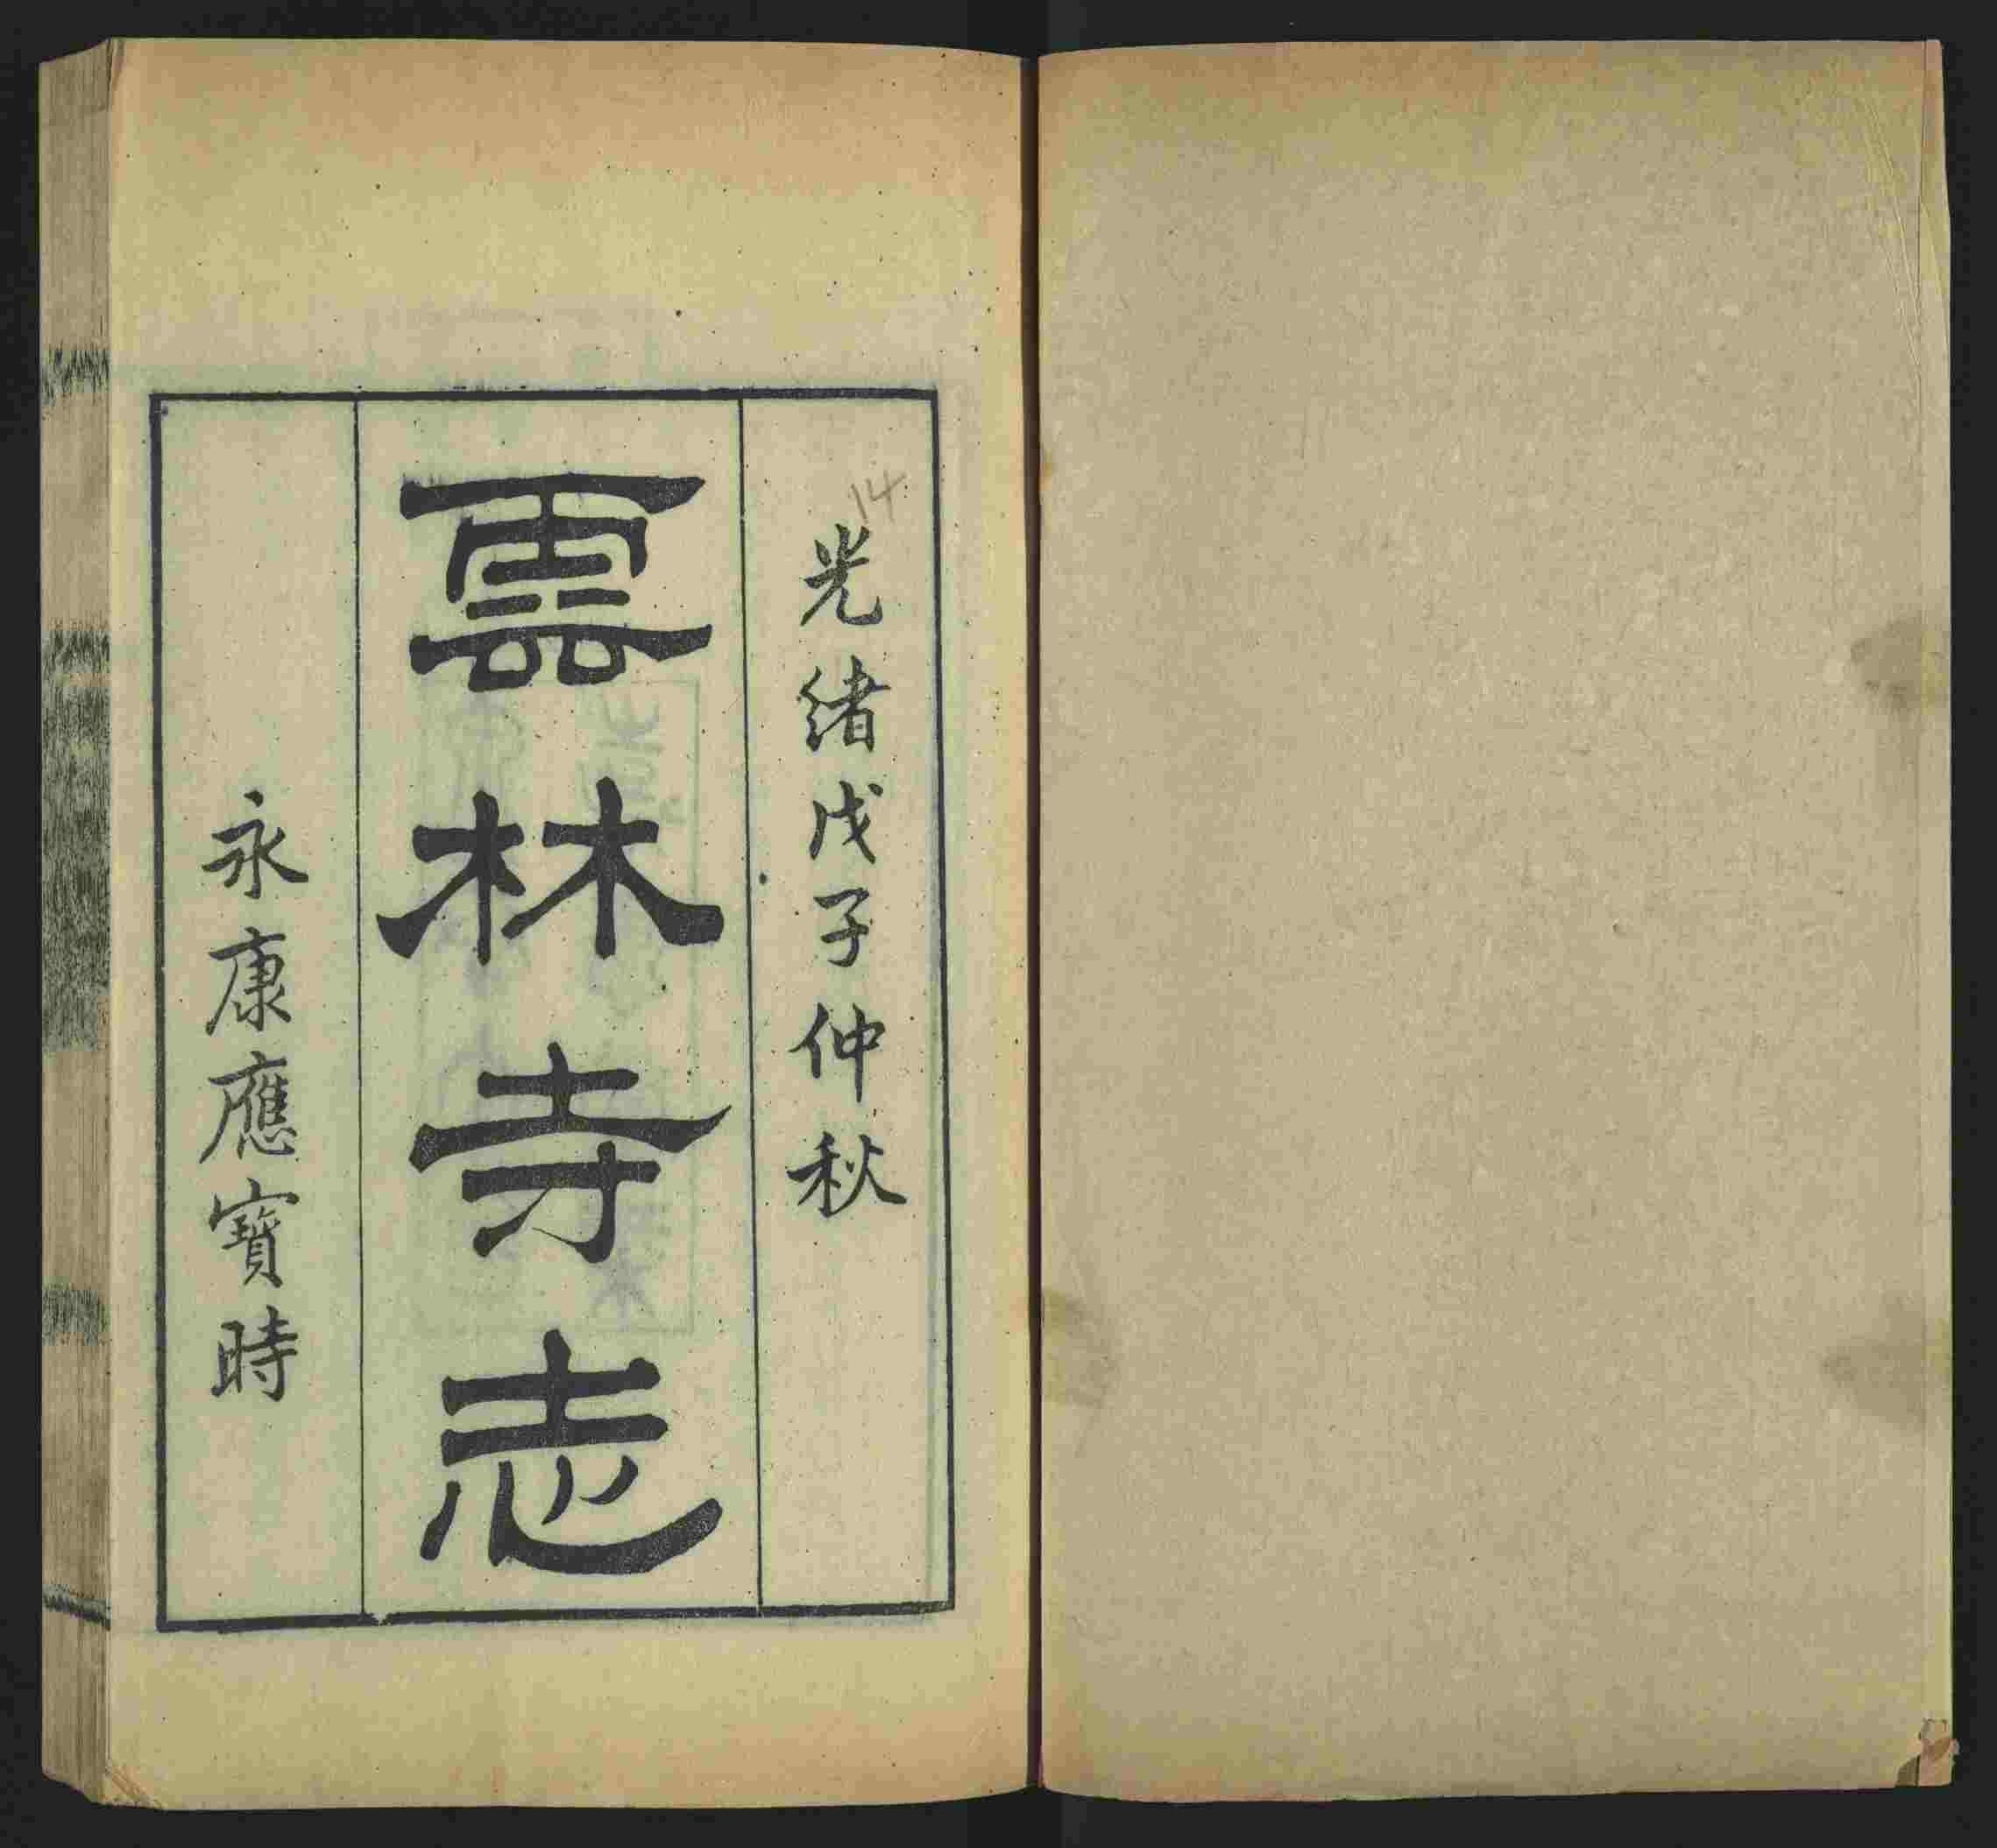 14
光緒戊子仲秋
雲林寺志
永康應寶時